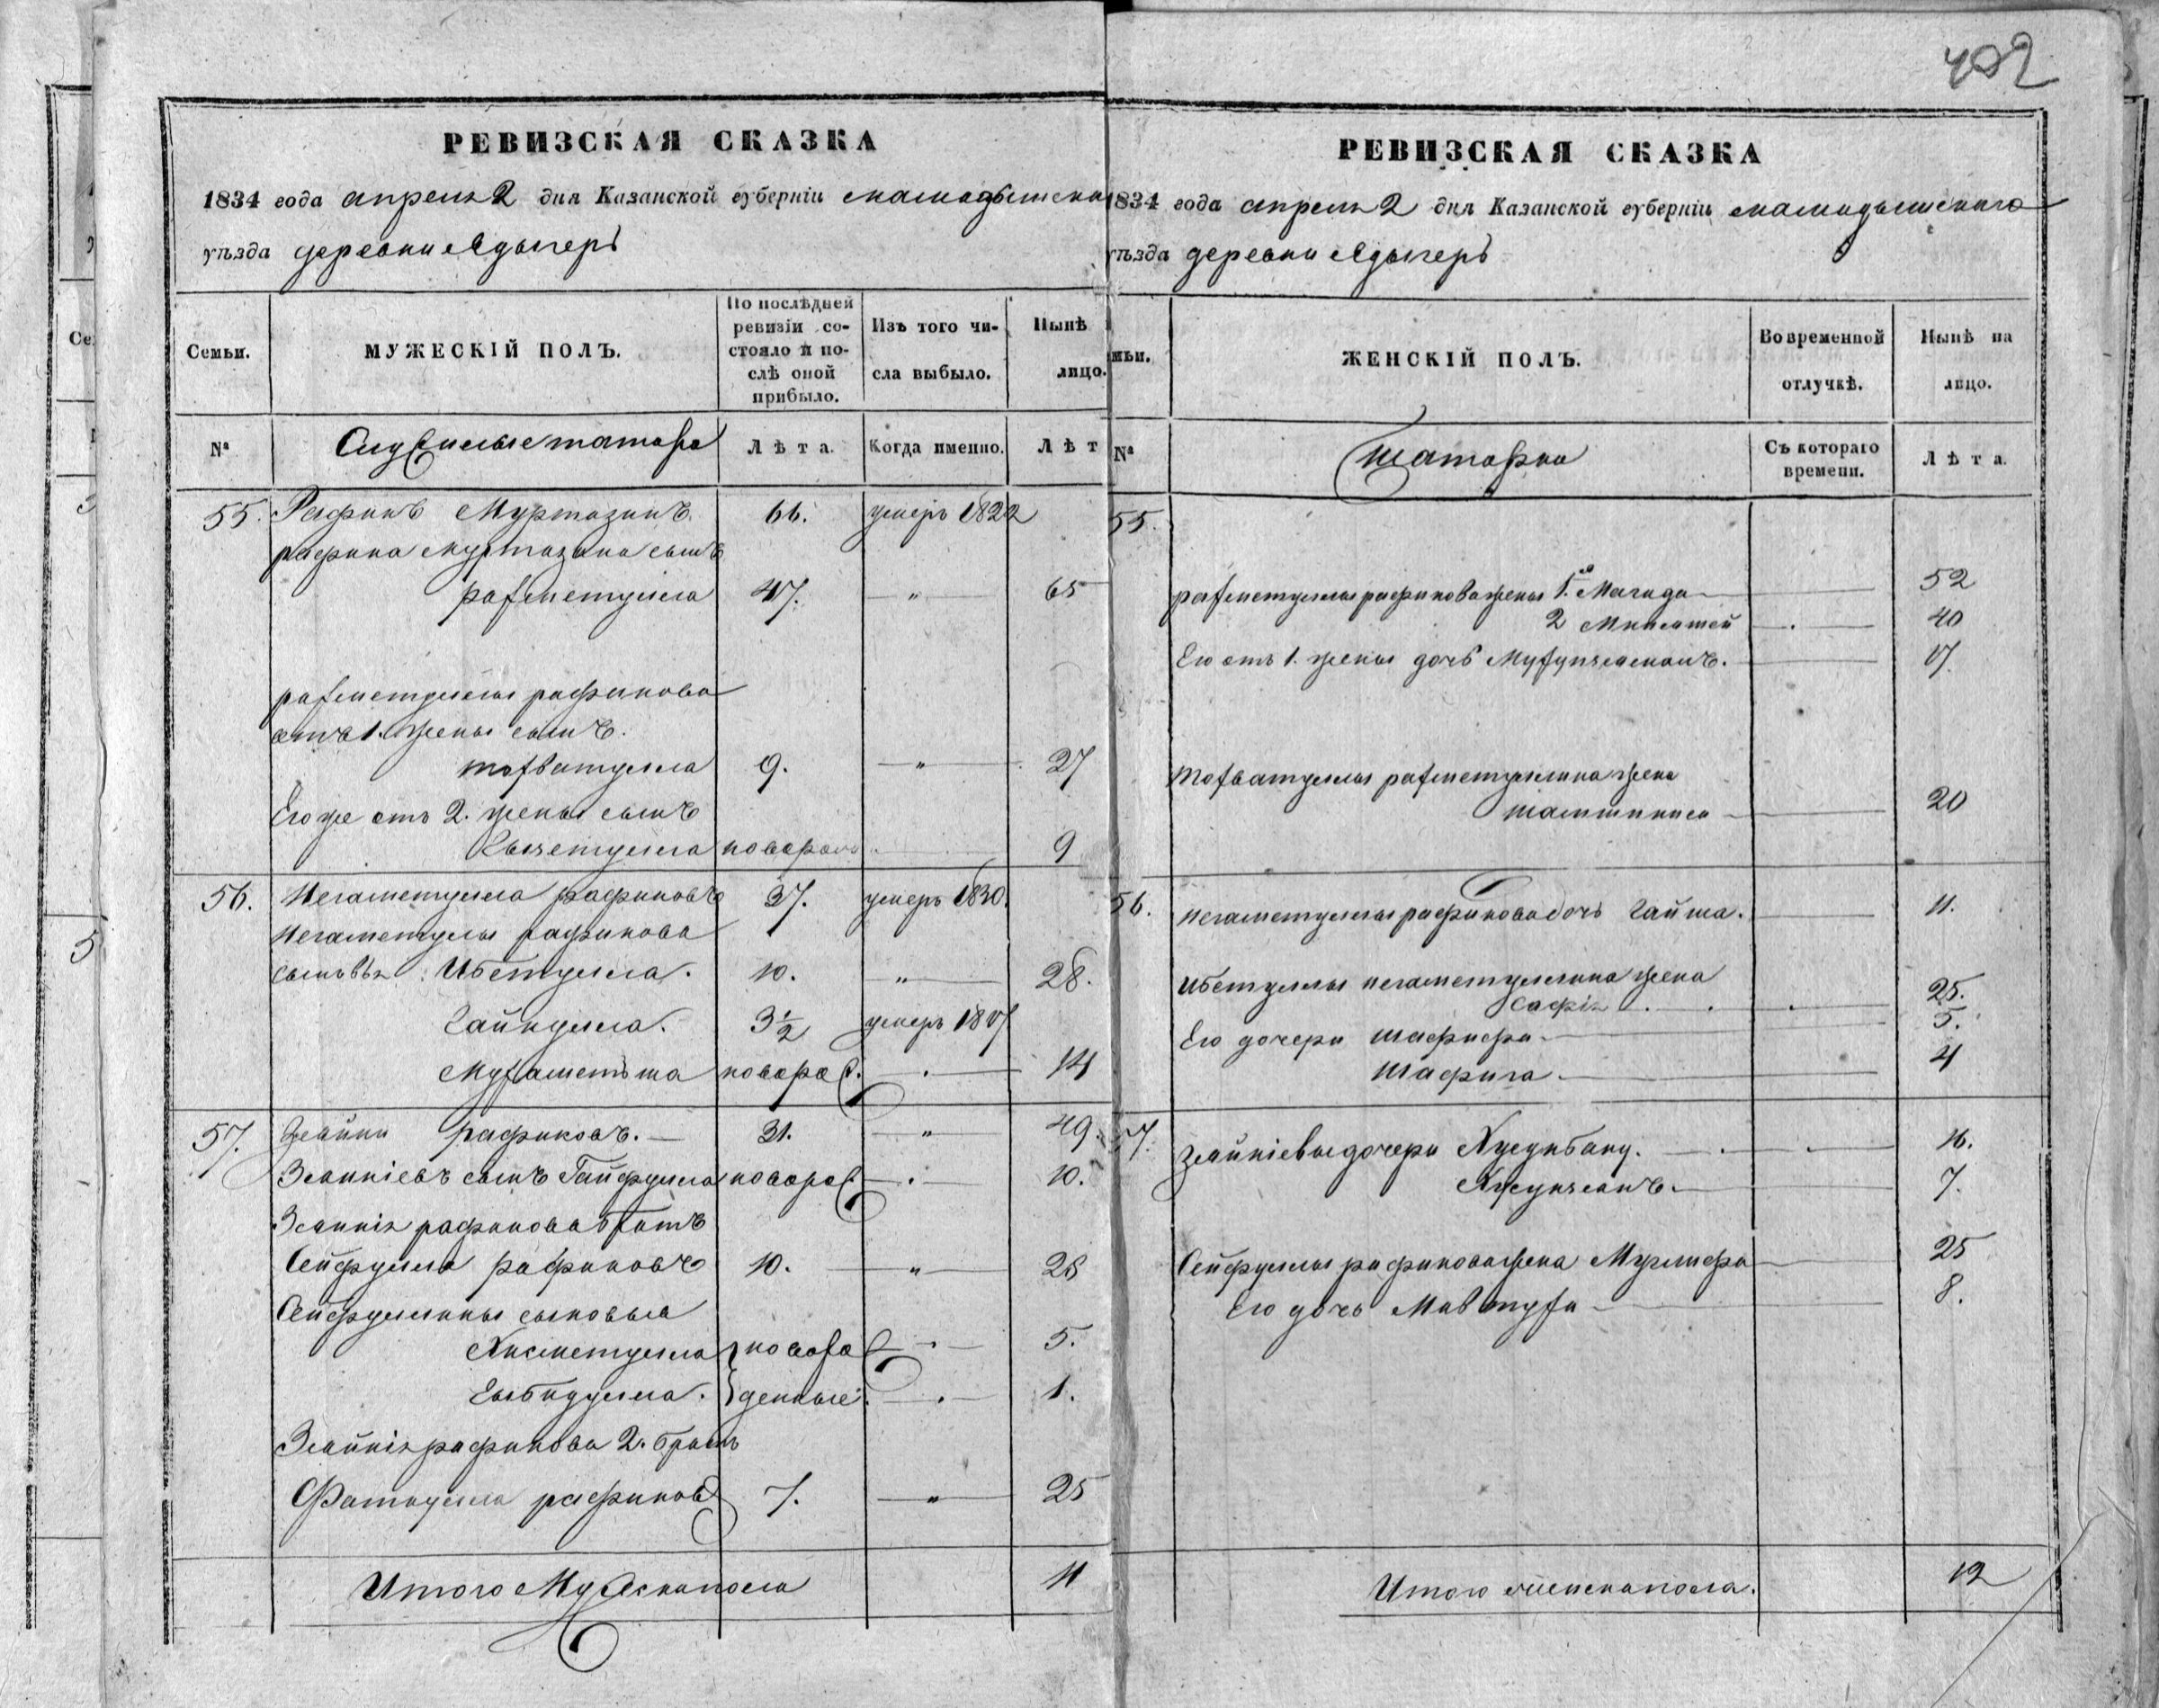 402
РЕВИЗСКАЯ СКАЗКА
1834 года апреля 2 дня Казанской губерніи мамадышска
уѣзда деревни Адыгеръ
Семьи.
МУЖЕСКІЙ ПОЛЪ.
По послѣдней ревизіи состояло и послѣ оной прибыло.
Изъ того числа выбыло.
Нынѣ лицо.
№
Служилые татара
Лѣта.
Когда именно.
Лѣт
55. Рафикъ Муртазинъ. 66. умеръ 1822
рафика муртазина сынъ
рахметулла 47. — " — 65
рахметуллы рафикова
отъ 1. жены сынъ.
тохватулла 9. — " — 27
Его же отъ 2. жены сынъ
новорож 9
56. Негаметулла рафиковъ 37. умеръ 1830.
Негаметуллы рафикова
сыновья Ибетулла. 10. — " — 28.
Гайнулла. 3½ умеръ
Мухаметьша новорож. — 14
57. Зейни рафиковъ. — 31. — " — 49.
Зейніевъ сынъ Гайфулла новорож. — 10.
Зейнія рафикова братъ
Сейфулла рафиковъ 10. — " — 28
Сейфуллины сыновья
Хисметулла } новорож — 5.
Гыбидулла. } денные. — 1.
Зейнія рафикова 2. братъ
Фаткулла рафиковъ 7. — " — 25
Итого Мужеска пола 11
РЕВИЗСКАЯ СКАЗКА
1834 года апреля 2 дня Казанской губерніи мамадышскаго
уѣзда деревни Адыгеръ
мьи.
ЖЕНСКІЙ ПОЛЪ.
Во временной отлучкѣ.
Нынѣ на лицо.
№
татарки
Съ котораго времени.
Лѣта.
55.
рахметуллы рафикова жены 1.я Магида — 52
2 — 40
Его отъ 1. жены дочь — 17.
Тохватуллы рахметуллина жена
шамшиниса — 20
56. негаметуллы рафикова дочь Гайша. — 11.
Ибетуллы негаметуллина жена
Сафія — 25.
Его дочери — 5.
Шафига. — 4
57. Зейніевы дочери Хусунбану. — 16.
Хусунзянъ. — 7.
Сейфуллы рафикова жена — 25
Его дочь — 8.
Итого женска пола. 12